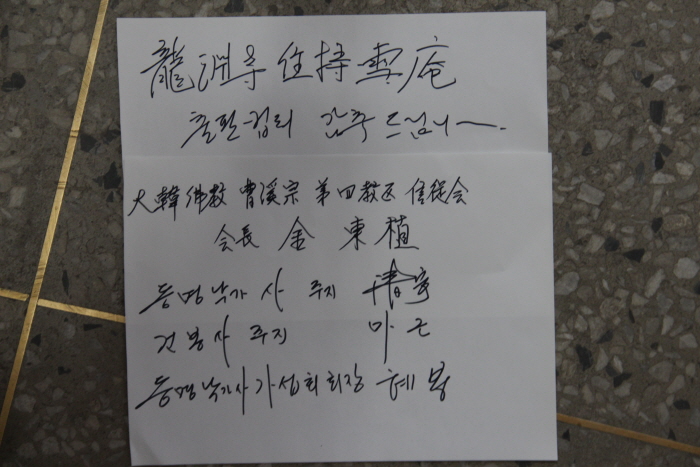 龍淵寺 住持 雪庵
출판경비 감축드립니다.
大韓佛教 曹溪宗 第四教区 信徒会
会長 金東植
동명낙가사 주지 清
건봉사 주지 마근
동명낙가사 가섭회 회장 혜봉